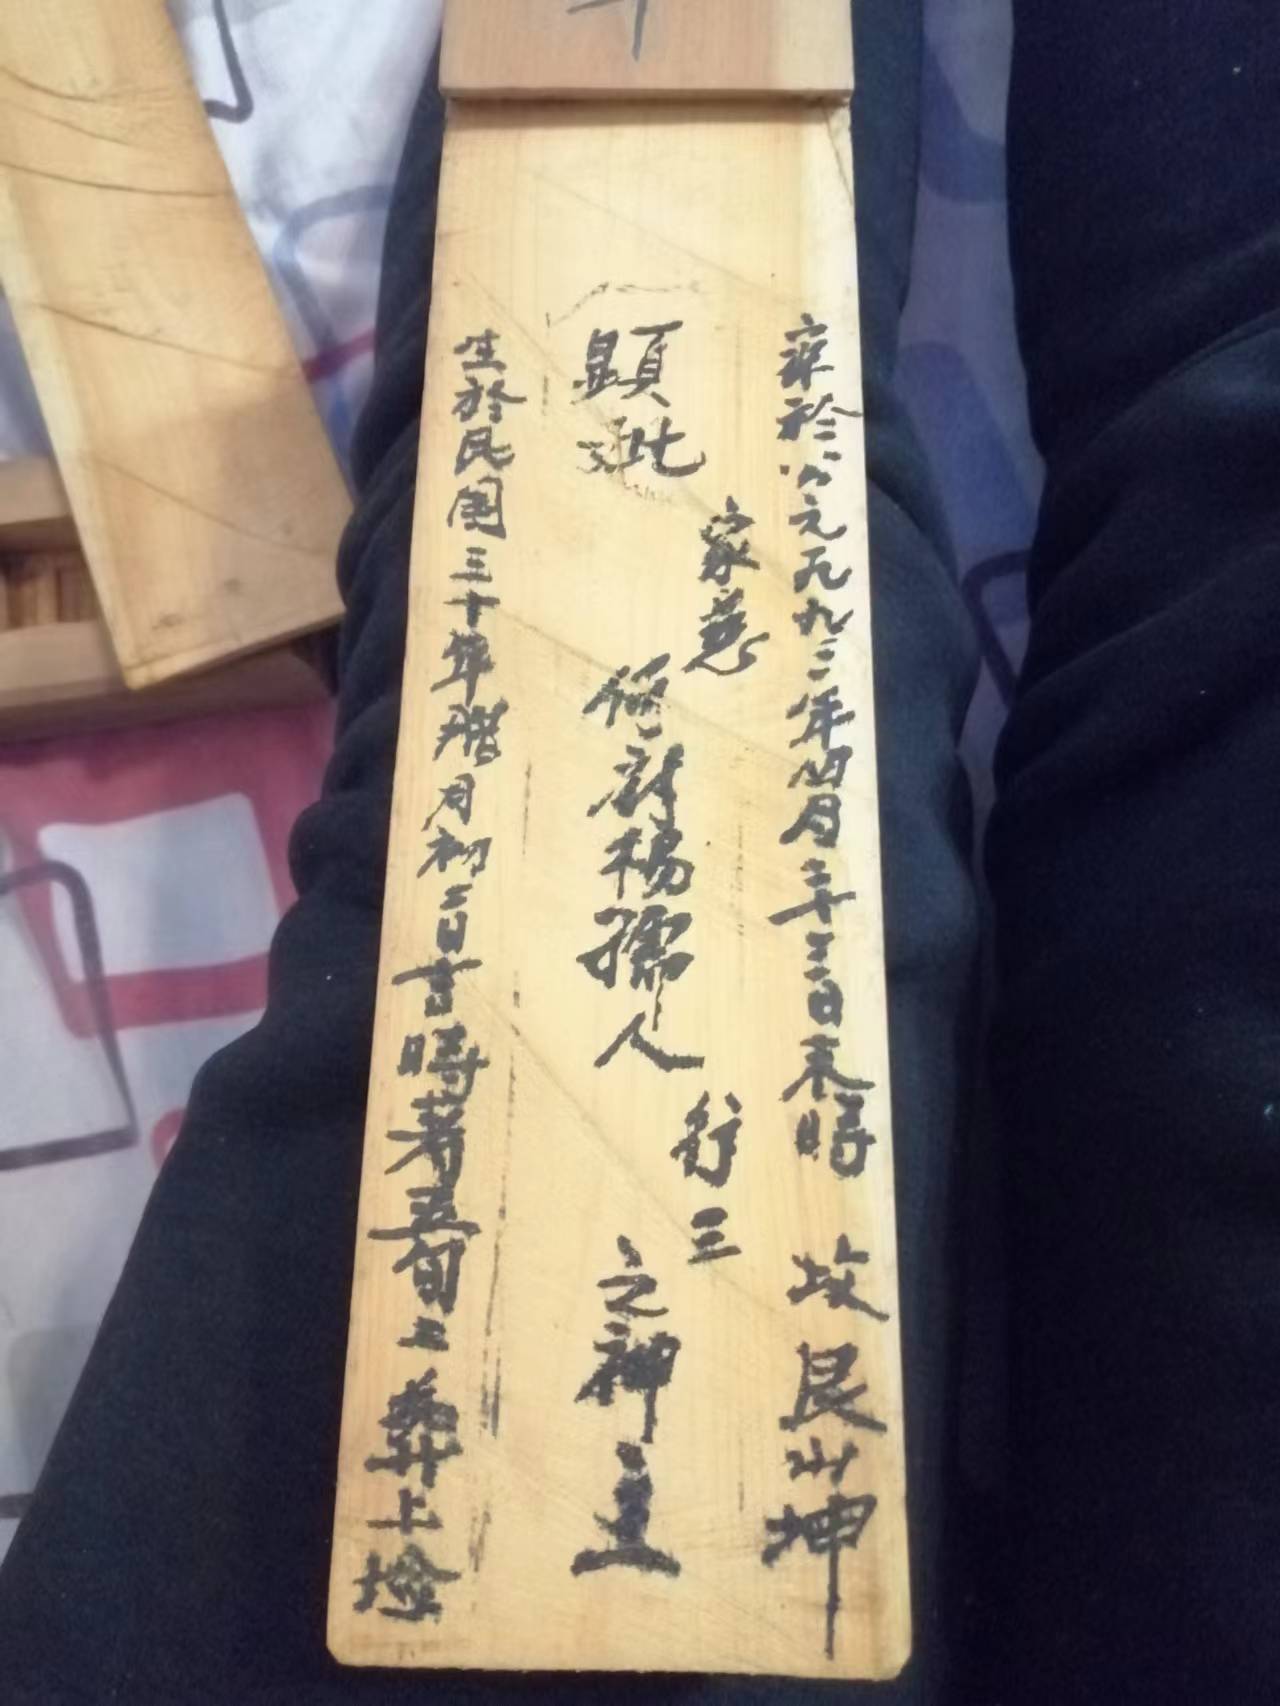 卒於公元一九九二年四月二十三日未時 坟艮山坤
家慈 行三
顯妣 何府楊孺人 之神主
生於民國三十年臘月初三日吉時 著五旬 葬上墩